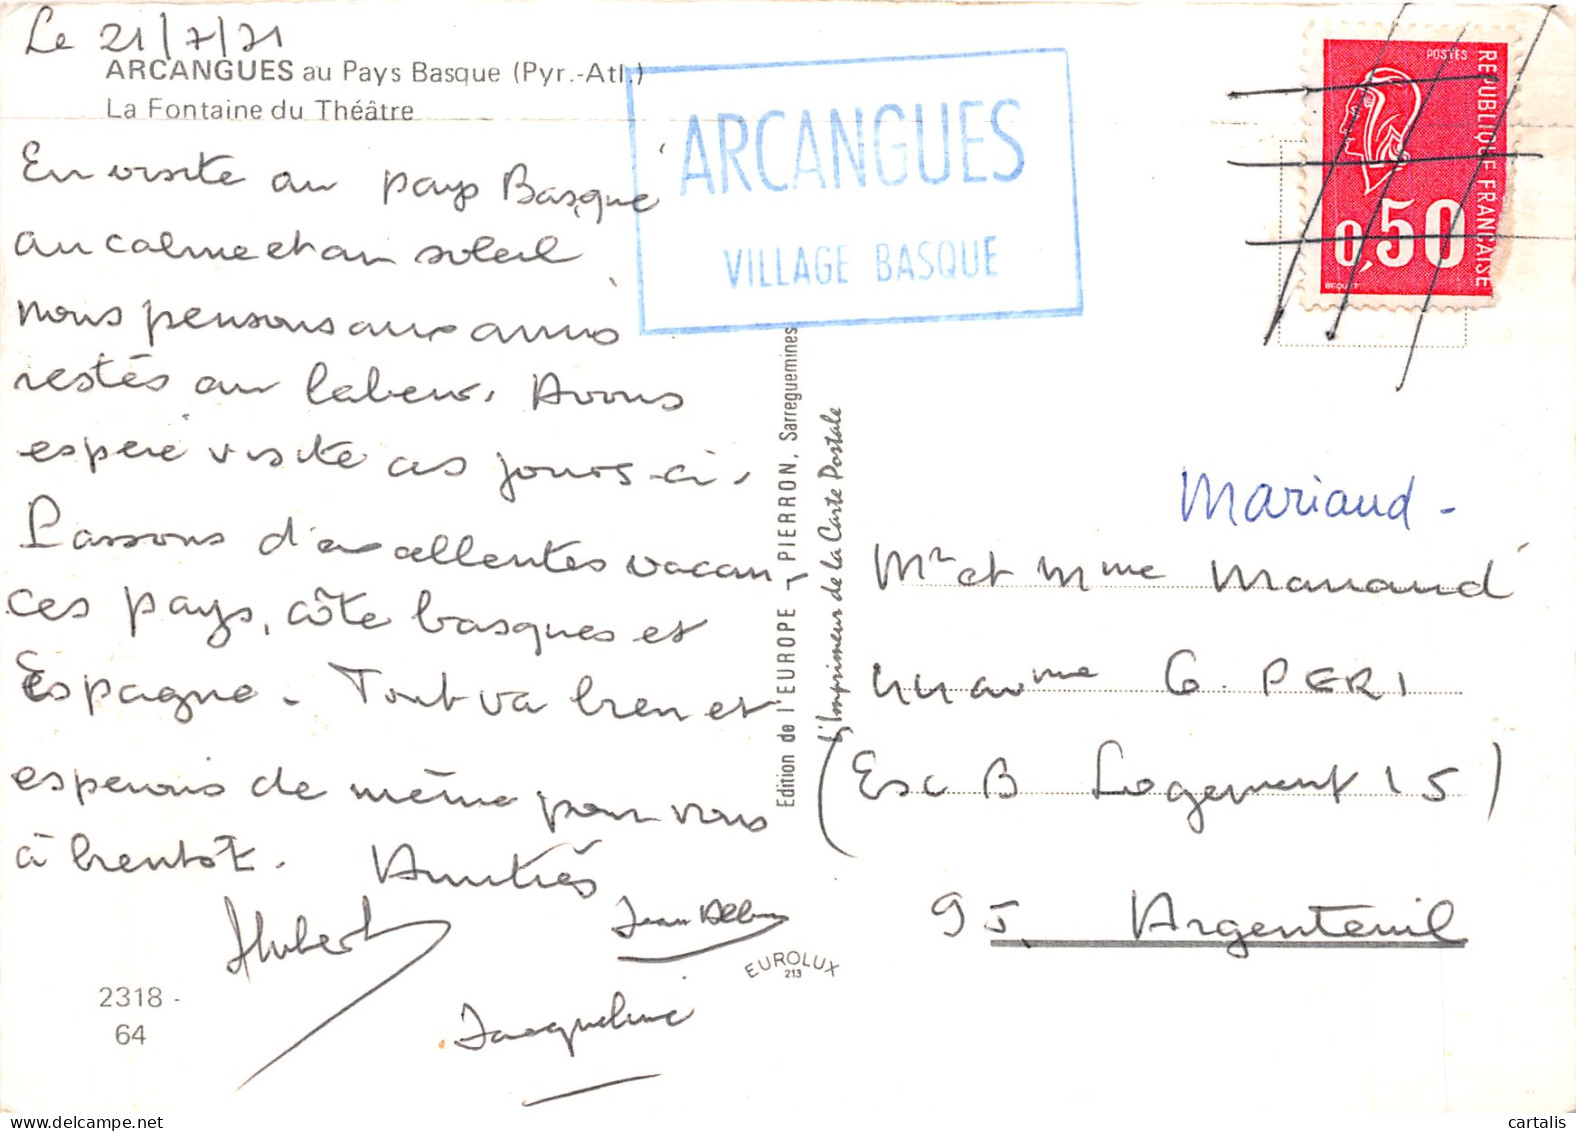 Le 21/7/71
ARCANGUES au Pays Basque (Pyr.-Atl.)
La Fontaine du Théâtre
En visite au pays Basque
au calme et au soleil
nous pensons aux amis
restés au labeur. Avons
espéré visite ces jours-ci.
Passons d'excellentes vacan-
ces pays, côte basques et
Espagne - Tout va bien et
esperons de même pour vous
à bientôt. Amitiés
Hubert
Jean Alben
Jacqueline
2318 -
64
EUROLUX
213
ARCANGUES
VILLAGE BASQUE
Edition de l'EUROPE - PIERRON, Sarreguemines
L'Imprimeur de la Carte Postale
POSTES
REPUBLIQUE FRANCAISE
0,50
BEQUET
Mariaud -
Mr et Mme Mariaud
G. PERI
(Esc B Logement 15)
95. Argenteuil
cartalis